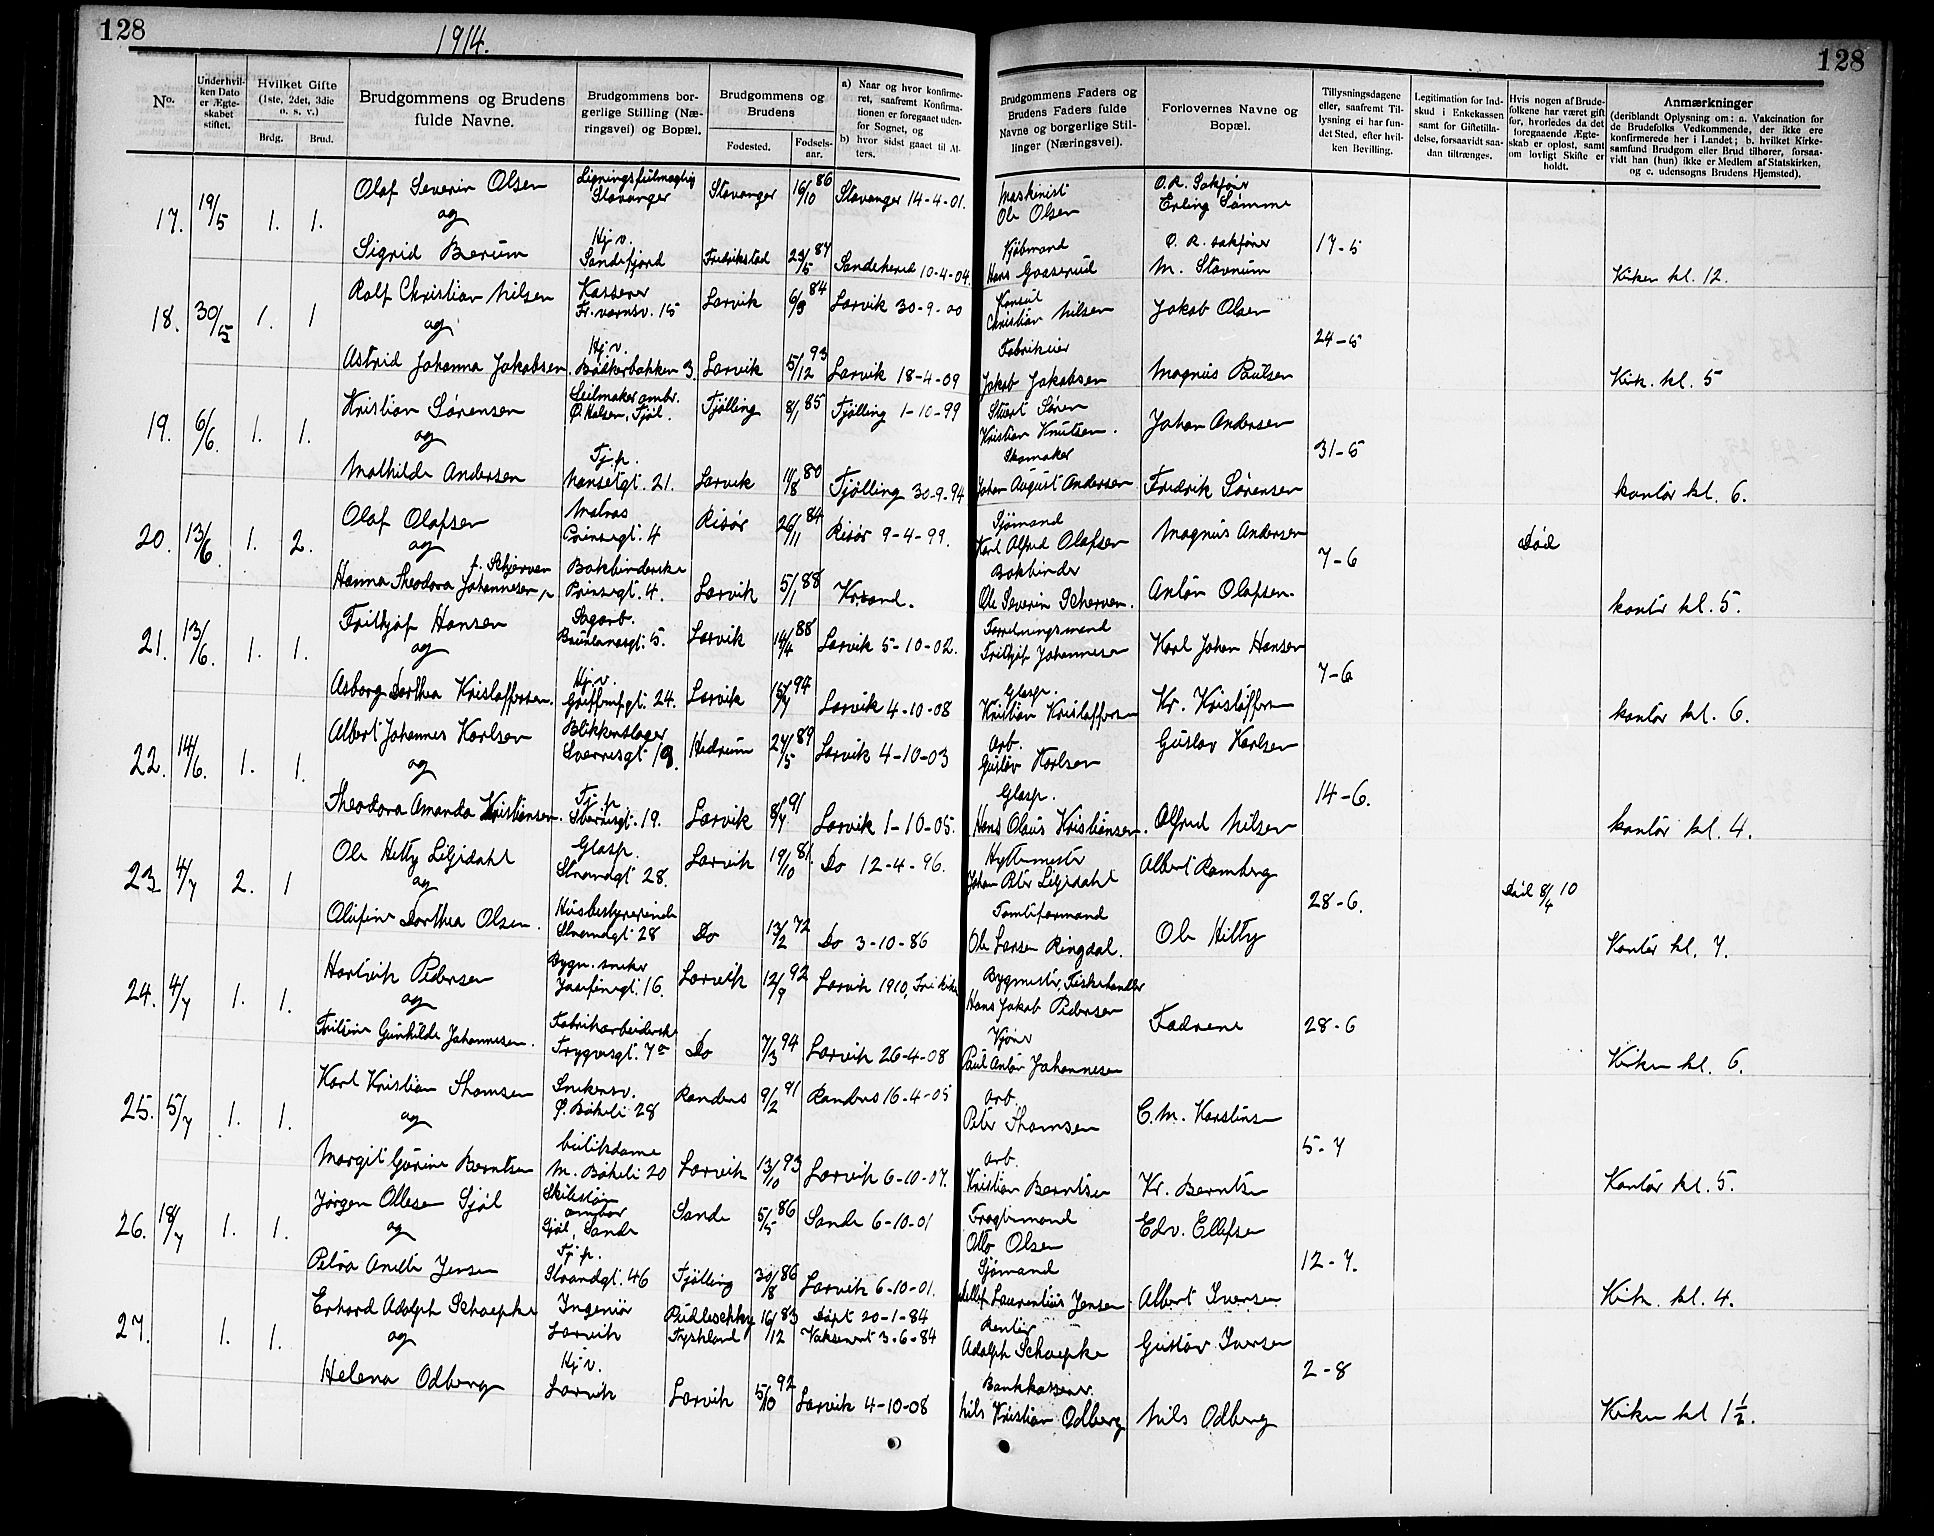 128
1914.
128
No.
Under hvil-
ken Dato
er Ægte-
skabet
stiftet.
Hvilket Gifte
(1ste, 2det, 3die
o. s. v.)
Brdg.
Brud.
Brudgommens og Brudens
fulde Navne.
Brudgommens bor-
gerlige Stilling (Næ-
ringsvei) og Bopæl.
Brudgommens og
Brudens
Fødested.
Fødsels-
aar.
a) Naar og hvor konfirme-
ret, saafremt Konfirma-
tionen er foregaaet uden-
for Sognet, og
b) hvor sidst gaaet til Al-
ters.
Brudgommens Faders og
Brudens Faders fulde
Navne og borgerlige Stil-
linger (Næringsvei).
Forlovernes Navne og
Bopæl.
Tillysningsdagene
eller, saafremt Til-
lysning ei har fun-
det Sted, efter hvil-
ken Bevilling.
Legitimation for Ind-
skud i Enkekassen
samt for Giftetilla-
delse, forsaavidt saa-
dan tiltrænges.
Hvis nogen af Brude-
folkene har været gift
før, hvorledes da det
foregaaende Ægte-
skab er opløst, samt
om lovligt Skifte er
holdt.
Anmærkninger
(deriblandt Oplysning om: a. Vakcination for
de Brudefolks Vedkommende, der ikke ere
konfirmerede her i Landet; b. hvilket Kirke-
samfund Brudgom eller Brud tilhører, forsaa-
vidt han (hun) ikke er Medlem af Statskirken,
og c. udensogns Brudens Hjemsted).
17. 19/5 1. 1. Olaf Severin Olsen Stavanger Stavanger 16/10 86 Stavanger 14-4-01. Maskinist Ole Olsen O.R. Sakfører Erling Sømme
og
Sigrid Berum Hj.v. Sandefjord Fredrikstad 23/5 87 Sandeherred 10-4-04. Kjøbmand Hans O. R. sakfører M. Stavnum 17-5 Kirken kl. 12.
18. 30/5 1. 1 Rolf Christian Nilsen Kasserer Fr.vernsv. 15 Larvik 6/9 84 Larvik 30-9-00 Konsul Christian Nilsen Jakob Olsen
og
Astrid Johanna Jakobsen. Hj.v. Bøkkerbakken 3. Larvik 5/12 93 Larvik 18-4-09 Fabrikeier Jakob Jakobsen Magnus Paulsen 24-5 Kirk. kl. 5
19. 6/6. 1. 1. Kristian Sørensen Ø. Halsen, Tjøl. Tjølling 8/1 85 Tjølling 1-10-99 Stuert Søren Kristian Knutsen. Johan Andersen
og
Mathilde Andersen Tj.p. Nansetgt. 21. Larvik 11/8 80 Tjølling 30-9-94 Skomaker Johan August Andersen Fredrik Sørensen 31-5 kontor kl. 6.
20. 13/6. 1. 2. Olaf Olafsen Matros Prinsegt. 4 Risør 26/11 84 Risør 9-4-99. Sjømand Karl Alfred Olafsen Magnus Andersen Død
og
Hanna Theodora Johannesen, f. Schjerven Bokbinderske Prinsegt. 4. Larvik 5/1 88 Krsand. Bokbinder Ole Severin Scherven. Anton Olafsen. 7-6 kontor kl. 5.
21. 13/6. 1. 1. Frithjof Hansen Sagarb. 5. Larvik 14/4 88 Larvik 5-10-02. Forretningsmand Frithjof Johannesen Karl Johan Hansen
og
Asborg Dorthea Kristoffersen. Hj.v. 24. Larvik 15/7 94 Larvik 4-10-08 Glasp. Kristian Kristoffersen Kr. Kristoffersen 7-6 kontor kl. 6.
22. 14/6. 1. 1. Albert Johannes Karlsen Blikkenslager Sverresgt 19. Hedrum 24/5 89 Larvik 4-10-03 Arb. Gustav Karlsen Gustav Karlsen
og
Theodora Amanda Kristiansen. Tj.p. Sverresgt. 19. Larvik 8/7 91 Larvik 1-10-05. Glasp. Hans Olaus Kristiansen. Alfred Nilsen 14-6. kontor kl. 4.
23 4/7 2. 1 Ole Hetty Liljedahl Glasp. Strandgt 28. Larvik 19/10 81. Do 12-4-96. Hyttemester Johan Peter Liljedahl Albert Ramberg Død 8/4 10
og
Olufine Dorthea Olsen. Husbestyrerinde Strandgt 28 Do 13/2 72 Do 3-10-86 Tomteformand Ole Larsen Ringdal. Ole Hetty 28-6. Kontor kl. 7.
24. 4/7 1. 1. Hartvik Pedersen Bygn. sneker 16. Larvik 12/9 92 Larvik 1910, Frikirke Bygmester, Fiskehandler Hans Jakob Pedersen Fædrene 28-6
og
Gunhilde Johannesen. Fabrikarbeiderske Trygvesgt. 7 Do 7/3 94 Larvik 26-4-08 Kjører Paul Anton Johannesen Kirken kl. 6.
25. 5/7 1. 1. Karl Kristian Thomsen Snekersv. Ø. Bøkeli 28 Randers 9/2 91 Randers 16-4-05 Arb. Peter Thomsen C.M. Karstensen
og
Margit Gurine Berntsen butikdame M. Bøkeli 20 Larvik 13/10 93 Larvik 6-10-07. Arb. Kristian Berntsen Kr. Berntsen 5-7 Kontor kl. 5.
26. 18/7 1. 1. Jørgen Ollesen Gjøl Gjøl, Sande Sande 5/5 86 Sande 6-10-01 Fragtemand Otto Olsen Edv. Ellefsen
og
Petra Anette Jensen Tj.p. Strandgt. 46 Tjølling 30/8 86 Larvik 6-10-01. Sjømand Laurentius Jensen. Albert Iversen 12-7. Kirk. kl. 4.
27. 1. 1. Erhard Adolph Schaepke Ingeniør Larvik Tyskland 16/12 83 Døpt 20-1-84 Vaksinert 3-6-84 Rentier Adolph Schaepke Gustav Iversen
og
Helena Odberg Hj.v. Larvik Larvik 5/10 92 Larvik 4-10-08 Bankkasserer. Nils Kristian Odberg Nils Odberg 2-8 Kirken kl 1½.